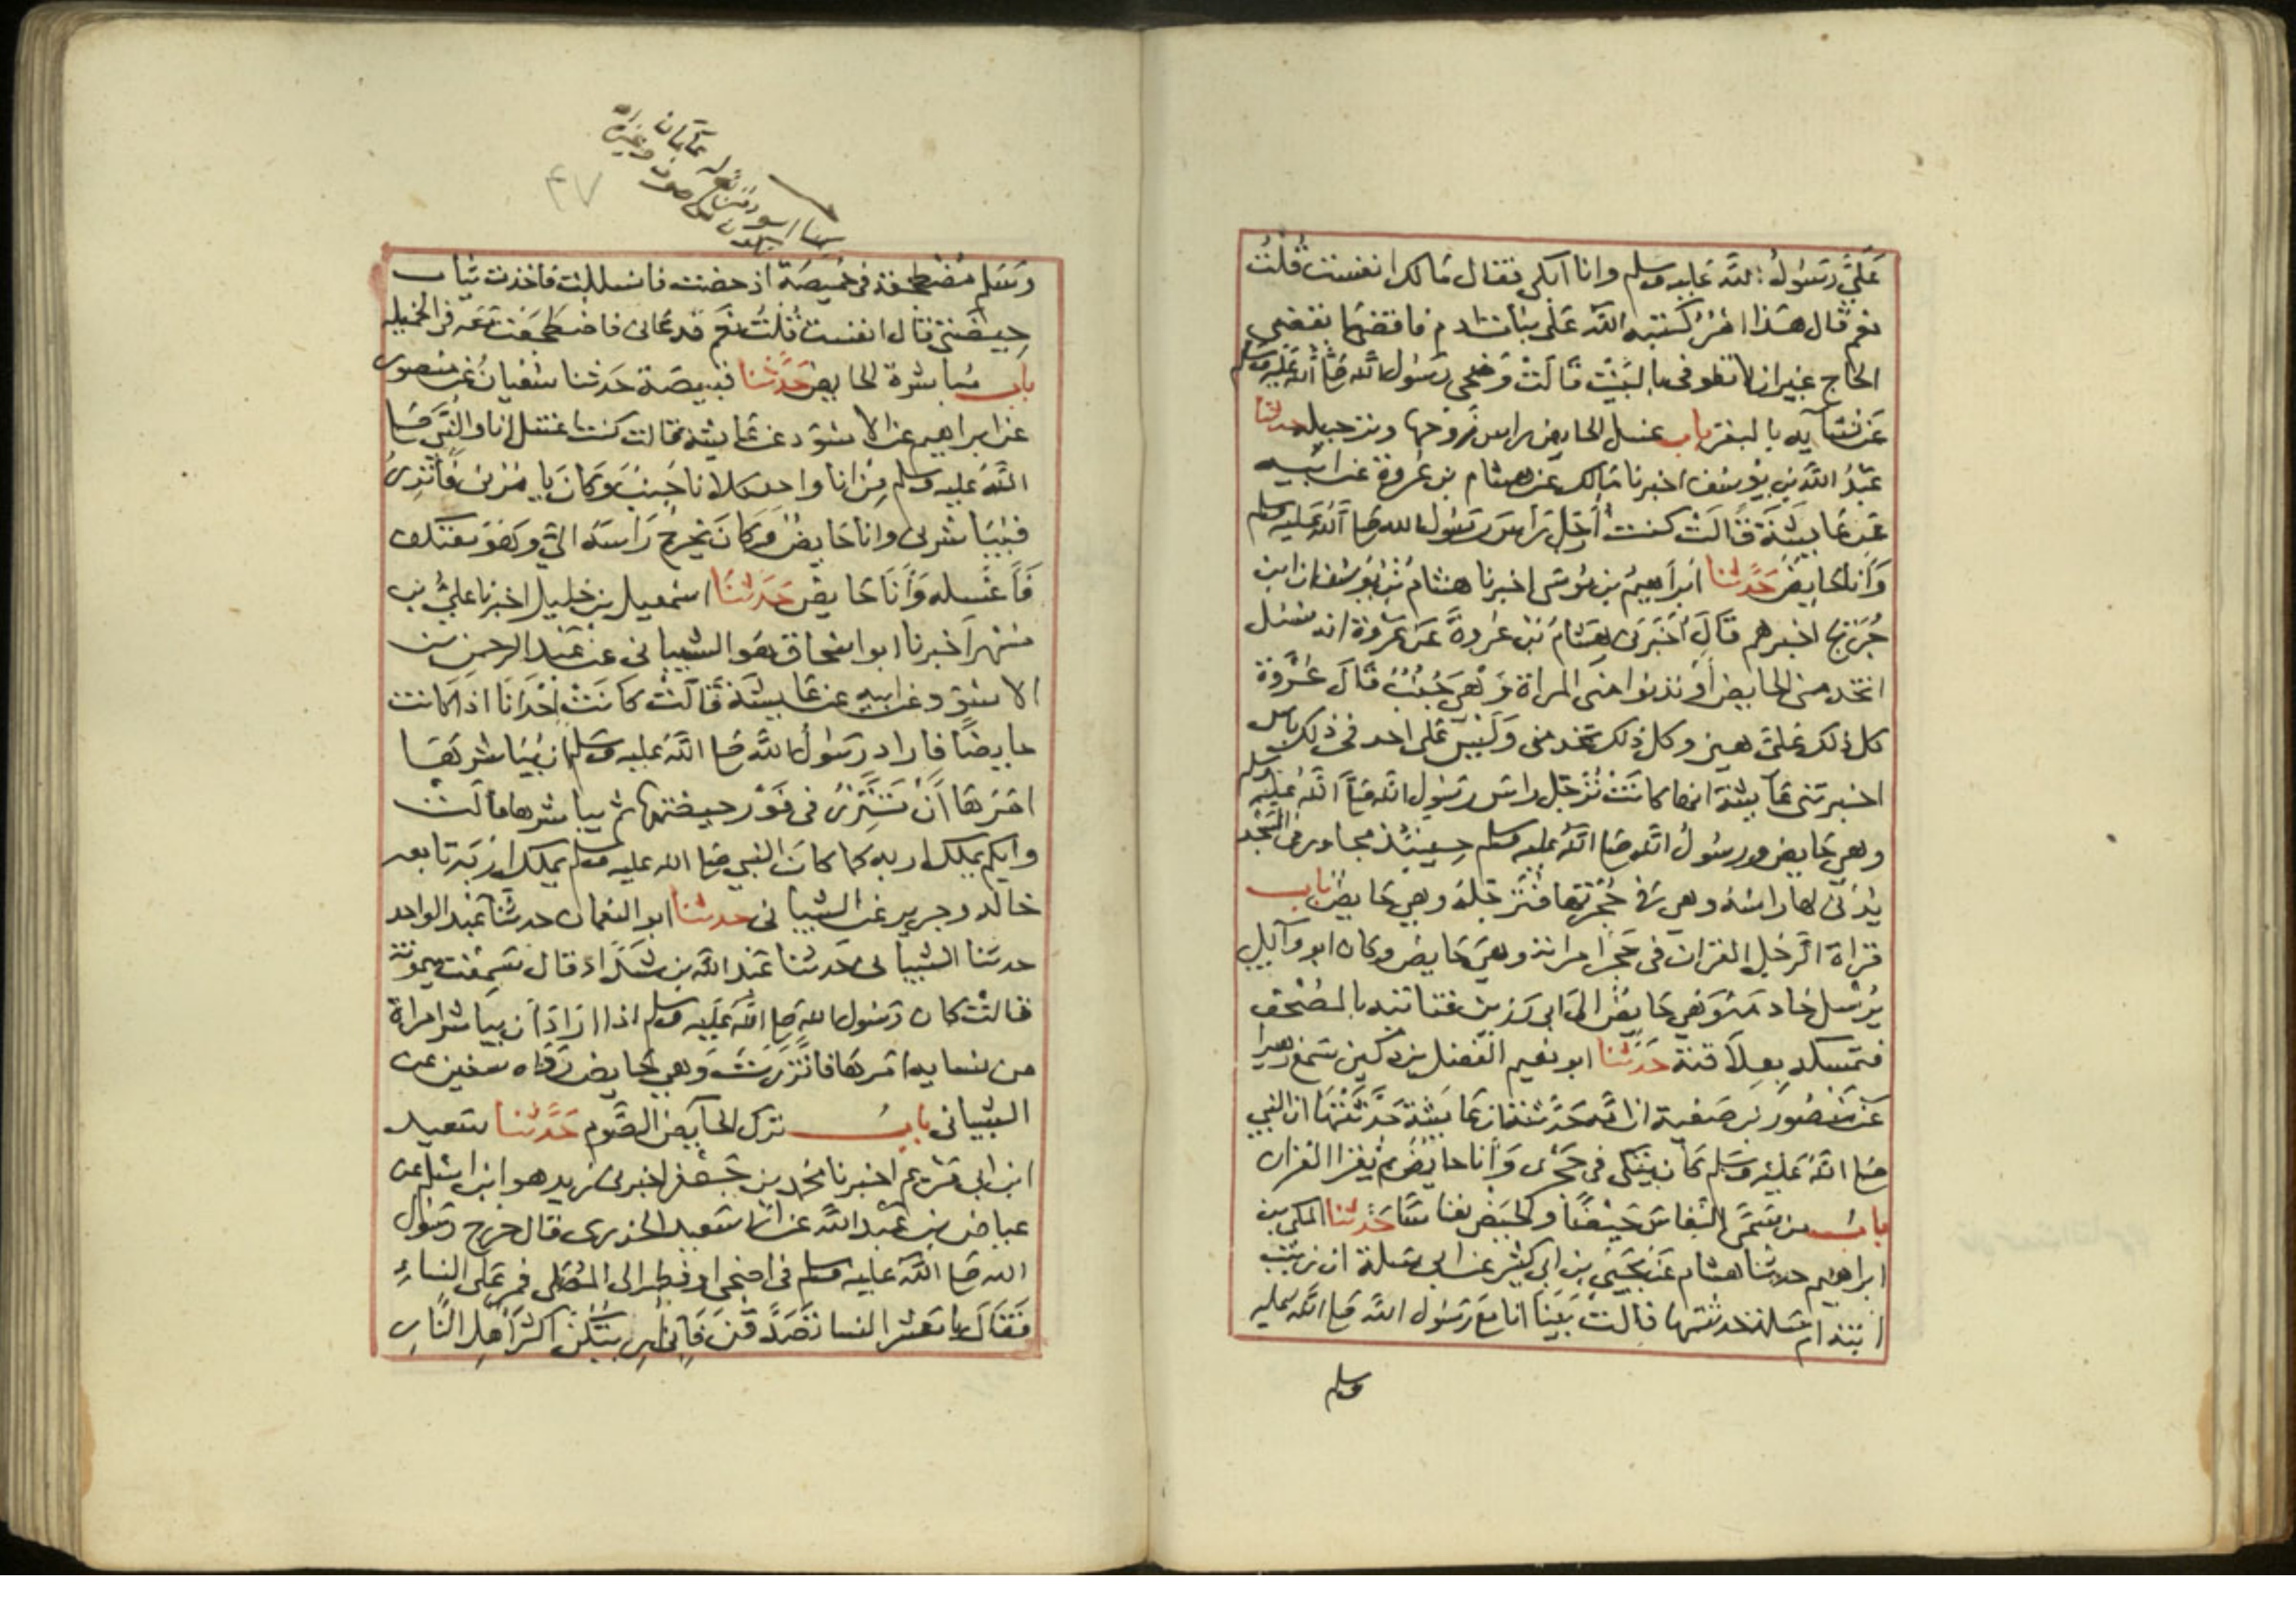 عَلَيَّ رَسُولُ اللَّه عَليه وسلم وانا ابكى فقال مَا لك انفست قُلْتُ
نعم قال هَذا امْرٌ كتبه اللَّه عَلى بنات ادم فاقضى مَا يقضى
الحاج غير ان لا تطوفى بالبَيْت قَالَتْ وَضحى رَسُول اللَّه صَلى اللَّه عَليه وسلم
عَن نسَآيه بالبقر باب غسل الحايض راس زَوجها وترجيله حدثنا
عَبْدُ اللَّه بن يُوسُف اخبرنا مَالك عَن هشام بن عُروة عَن ابيه
عَن عَايشَة قَالَتْ كنت اُرَجّل رَاسَ رَسُول الله صَلى اللَّه عَليه وسلم
وَانَا حَايِضٌ حَدَّثنا ابرَاهيمُ بن مُوسَى اخبرنا هشامُ بْنُ يُوسُف ان ابن
جُرَيْج اخبرهم قَالَ اَخْبَرَنى هِشَامُ بْن عُروةَ عَن عُروة انه سُئل
اتخدمنى الحايض اَو تدنوا منى المراة وَهىَ جُنُبٌ فقَالَ عُرْوَة
كل ذلك عَلىَّ هين وكل ذلك تخدمنى وَلَيْسَ عَلى احد فى ذلك باس
اخبرتنى عَآيشة انها كانَتْ تُرَجّل راسَ رسُول الله صَلى اللَّه عَليه وسلم
وهي حَايض ورسُولُ اللَّه صَلى اللَّه عَليه وسلم حِينئذ مجاور فى المَسْجد
يُدْنى لهَا رَاسَهُ وهي فى حُجْرتهَا فتُرَجّلهُ وهي حَايضٌ باب
قراة الرَّجُل القران فى حَجْر امراته وهي حَايض وكان ابو وآيل
يُرْسل خادمَهُ وَهي حَايضٌ الى ابى رَزين فتاتيه بالمصْحَف
فتمسكه بعِلاقته حَدَّثنا ابو نعيم الفَضل بن دكين سَمعَ زهيرا
عَن مَنْصُور بن صَفية ان امَّه حَدَّثته ان عَايشَة حَدَّثتهَا ان النبي
صَلى اللَّه عَليه وسَلم كان يَتّكى فى حَجْرى وَاَنا حايضٌ ثم يقرا القران
بابُ مَن سَمَّى النّفاسَ حَيْضًا والحَيض نفاسًا حَدَّثنا المكى بن
ابراهيم حدثنا هشام عَن يَحْيَى بن ابى كثير عن ابى سَلمة ان زَينب
ابنة ام سَلمة حدثتها قالتْ بَيْنَا انا مَعَ رَسُول اللَّه صَلى اللَّه عليه
وسلم
٤٧
وَسَلم مضْطجعَة فى خَميصَة اذ حضت فانسَللت فاخذت ثياب
حِيضَتى قال انفست قُلتُ نعَم فدعَانى فاضطَجعت مَعَه فى الخميلة
باب مُباشرة الحايض حَدَّثنا قبيصَة حَدثنا سُفيان عَن منصور
عن ابراهيم عن الاسْوَد عَن عَايشة قالت كنت اغتسل انا والنَّبي صَلى
اللَّه عَليه وسلم مِن انا واحد كلانا جُنبٌ وَكانَ يَامُرْنى فَاَتَّزِرُ
فيُبَاشرنى وانا حَايضٌ وَكانَ يخرجُ رَاسَه الىَّ وَهوَ معْتكف
فَاَغْسله وَاَنا حَايضٌ حَدَّثنا اسْمعيل بن خليل اخبرنا علىُّ بن
مسْهر اَخبرنا ابو اسْحَاق هُوَ الشيبانى عَن عَبْد الرحمن بن
الاسْوَد عَن ابيه عَن عَايشَة قَالَتْ كانَتْ اِحْدَانَا اذا كانت
حايضًا فاراد رَسُولُ اللَّه صَلى اللَّه عَليه وسلم ان يُبَاشرهَا
امَرهَا اَنْ تَتَّزِرَ فى فَوْر حيضتهَا ثم يباشرها قالَتْ
وايكم يملك اربه كما كانَ النبي صَلى الله عليه وسلم يملك ارْبَه تابعه
خالد وجرير عَن الشيبانى حدثنا ابو النعمان حدثنا عَبْد الواحد
حدثنا الشيبانى حَدثنا عَبْد اللَّه بن شدَّاد قال سَمِعْت ميمونة
قالتْ كان رَسُول الله صَلى اللَّه عَليه وسلم اذا ارَادَ اَن يبَاشر امراة
من نسايه امَرهَا فاتَّزرَتْ وَهي حَايض رَوَاه سفين عن
الشيبانى بابُ ترك الحَايض الصَّوم حَدَّثنا سَعيد
ابن ابى مَرْيم اخبرنا محمد بن جَعْفر اخبرنى زيد هو ابن اسْلم عن
عياض بن عَبْد اللَّه عَن ابى سَعيد الخدرى قال خرج رَسُول
الله صَلى اللَّه عليه وسلم فى اضحى او فطر الى المصَلى فمر عَلى النسَاءِ
فَقَالَ يا مَعْشر النسا تَصَدَّقنَ فَاِنى اُرِيتكُنَّ اكثرَ اَهلِ النَّارِ